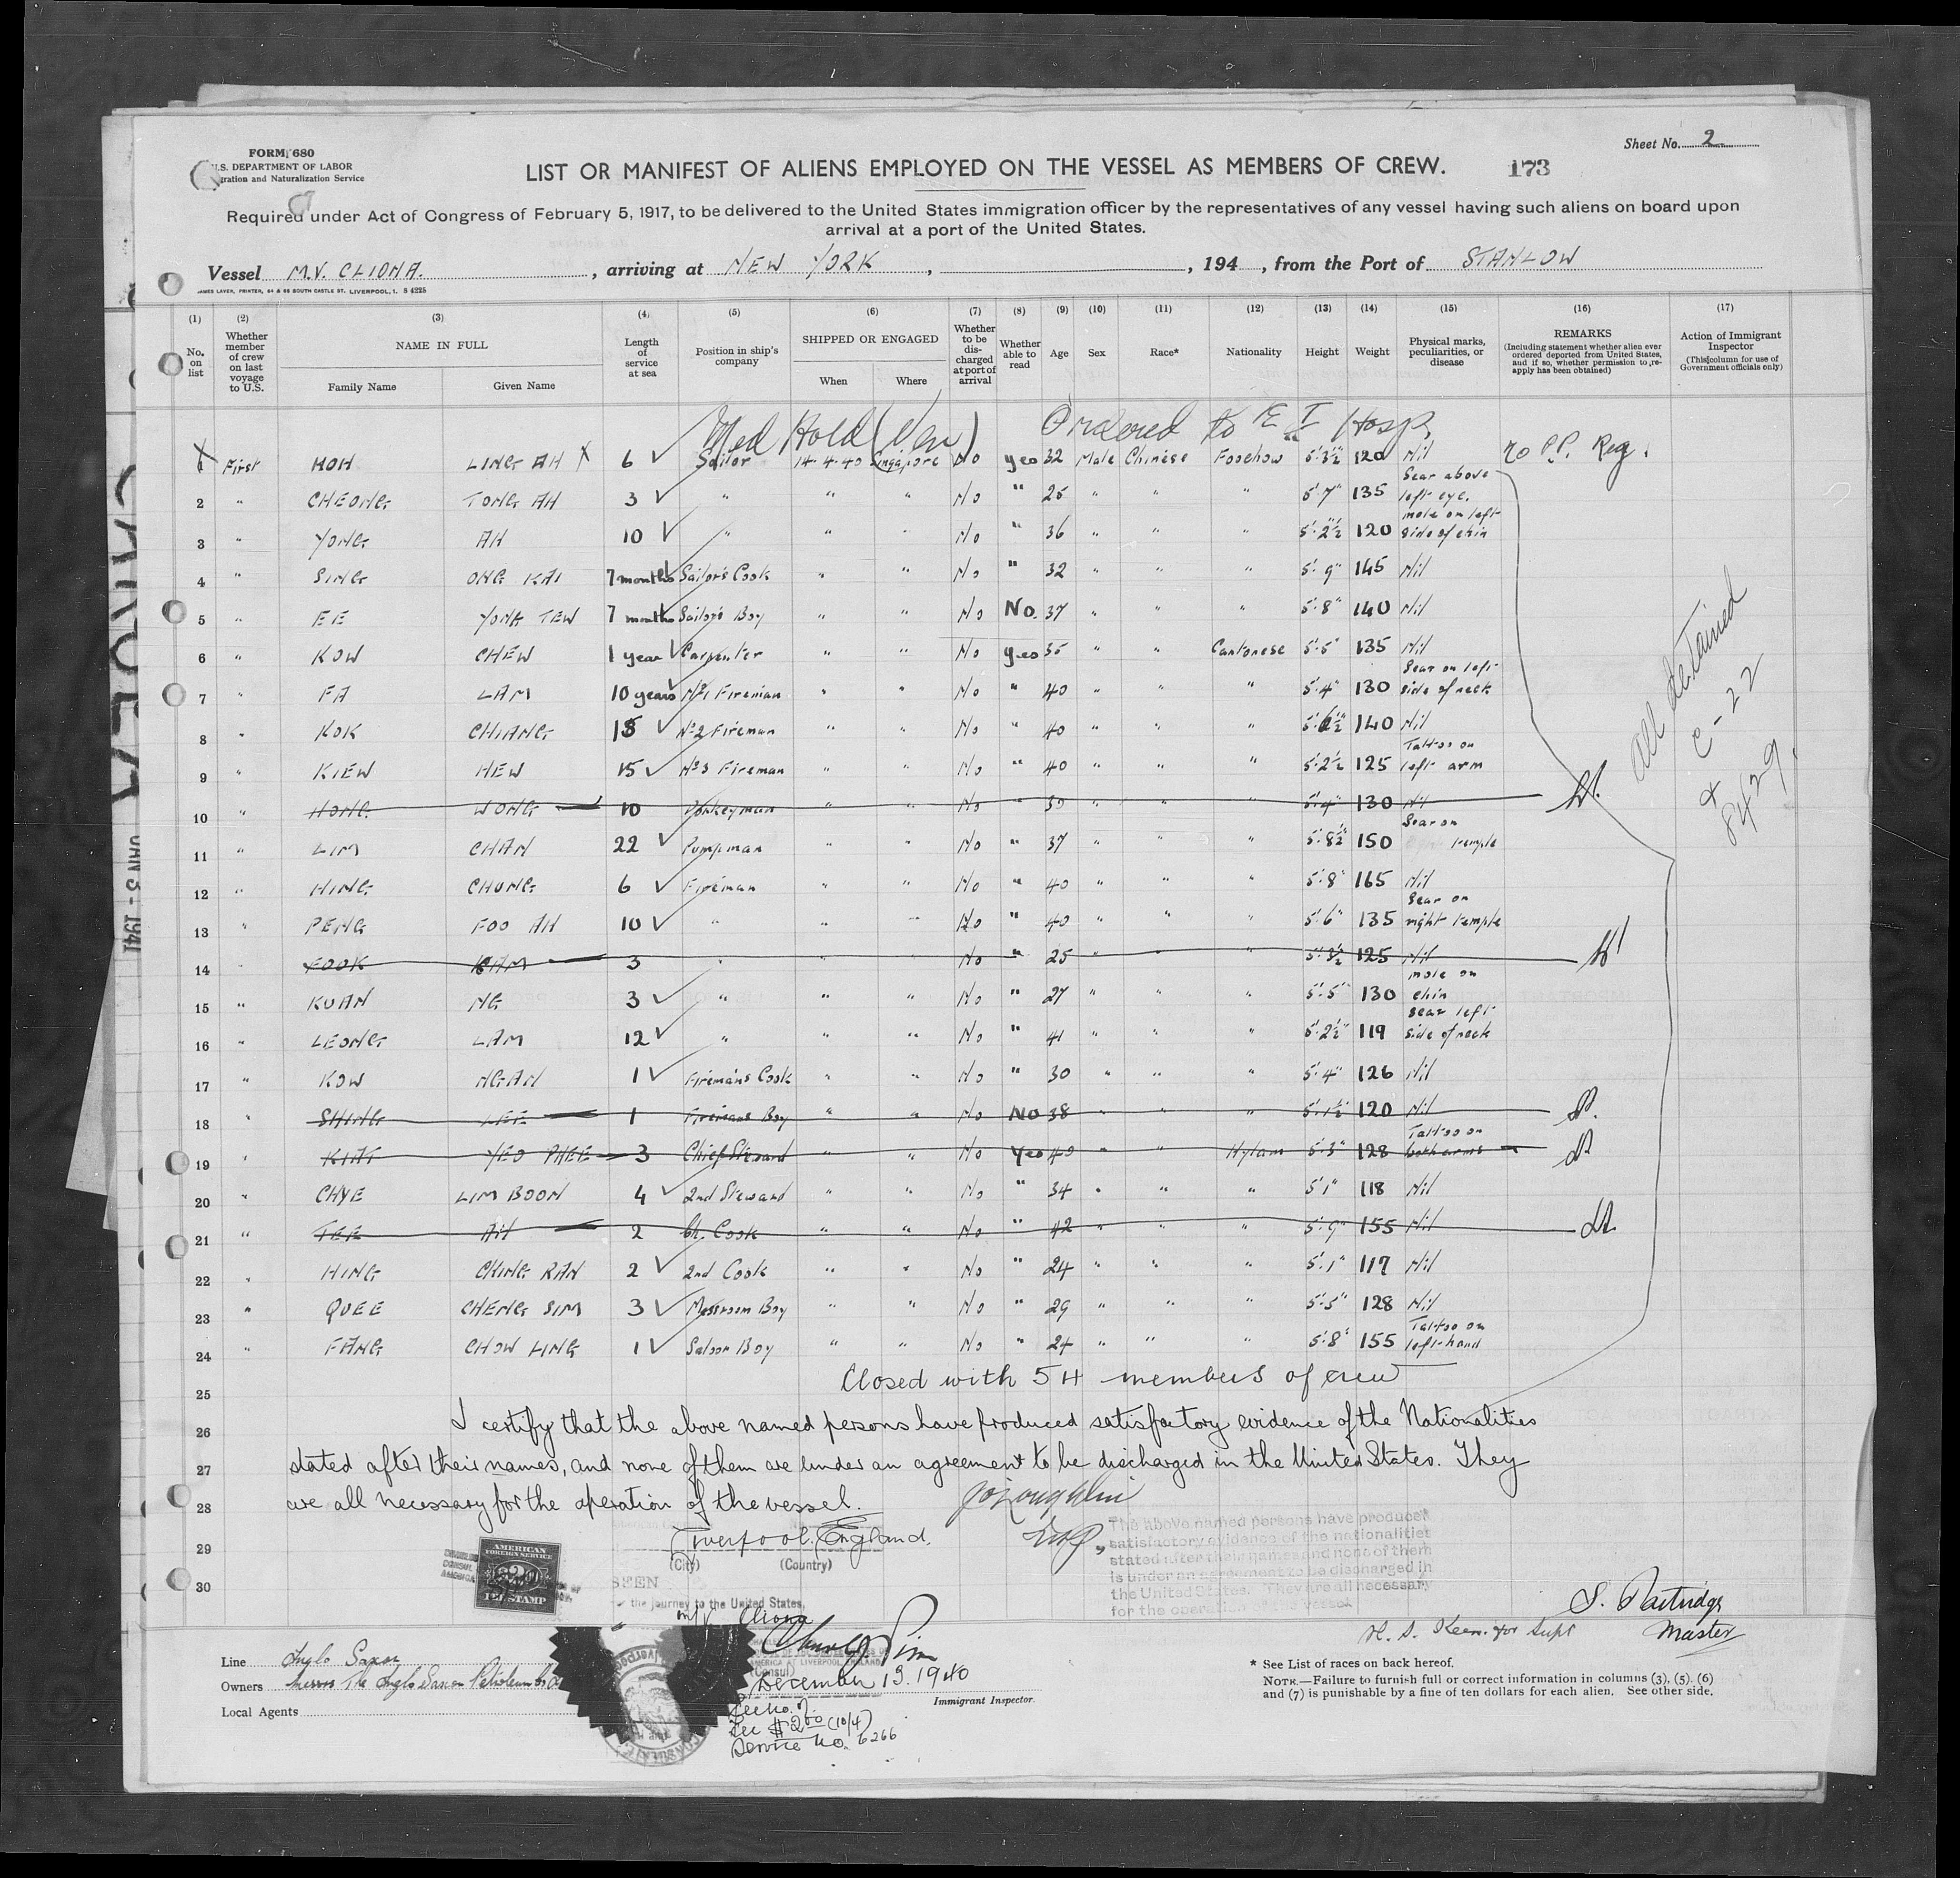 FORM 680
U.S. DEPARTMENT OF LABOR
gration and Naturalization Service
Sheet No. 2
LIST OR MANIFEST OF ALIENS EMPLOYED ON THE VESSEL AS MEMBERS OF CREW. 173
Required under Act of Congress of February 5, 1917, to be delivered to the United States immigration officer by the representatives of any vessel having such aliens on board upon
arrival at a port of the United States.
Vessel M.V. CLIONA. , arriving at NEW YORK , , 194 , from the Port of STANLOW
JAMES LAVER, PRINTER, 64 & 66 SOUTH CASTLE ST. LIVERPOOL, 1. S 4225
(1) (2) (3) (4) (5) (6) (7) (8) (9) (10) (11) (12) (13) (14) (15) (16) (17)
No. on list
Whether member of crew on last voyage to U.S.
NAME IN FULL
Family Name
Given Name
Length of service at sea
Position in ship's company
SHIPPED OR ENGAGED
When
Where
Whether to be discharged at port of arrival
Whether able to read
Age
Sex
Race*
Nationality
Height
Weight
Physical marks, peculiarities, or disease
REMARKS
(Including statement whether alien ever ordered deported from United States, and if so, whether permission to re-apply has been obtained)
Action of Immigrant Inspector
(This column for use of Government officials only)
Med Hold (Ven) Ordered to E I Hosp.
1 First HOH LING AH X 6 Sailor 14.4.40 Singapore No yes 32 Male Chinese Foochow 5'3½ 120 Nil no P.P. Reg.
2 " CHEONG TONG AH 3 " " " No " 25 " " " 5'7" 135 Scar above left eye.
3 " YONG AH 10 " " " No " 36 " " " 5'2½" 120 mole on left side of chin
4 " SING ONG KAI 7 months Sailor's Cook " " No " 32 " " " 5'9" 145 Nil
5 " EE YONG TEW 7 months Sailor's Boy " " No No. 37 " " " 5'8" 140 Nil
6 " KOW CHEW 1 year Carpenter " " No yes 35 " " Cantonese 5'5" 135 Nil
7 " FA LAM 10 years No1 Fireman " " No " 40 " " " 5'4" 130 Scar on left side of neck
8 " KOK CHIANG 15 No2 Fireman " " No " 40 " " " 5'6½" 140 Nil
9 " KIEW HEW 15 No3 Fireman " " No " 40 " " " 5'2½ 125 Tattoo on left arm
10 " HONG WONG 10 Donkeyman " " No " 39 " " " 5'4" 130 Nil
11 " LIM CHAN 22 Pumpman " " No " 37 " " 5'8½" 150 Scar on temple
12 " HING CHUNG 6 Fireman " " No " 40 " " " 5'8" 165 Nil
13 " PENG FOO AH 10 " " " No " 40 " " " 5'6" 135 Scar on right temple
14 " FOOK KAM 3 " " " No " 25 " " " 5'8½ 125 Nil
15 " KUAN NG 3 " " " No " 27 " " " 5'5" 130 mole on chin
16 " LEONG LAM 12 " " " No " 41 " " " 5'2½" 119 Scar left side of neck
17 " KOW NGAN 1 Fireman's Cook " " No " 30 " " " 5'4" 126 Nil
18 " SHING LEE 1 Fireman's Boy " " No No 38 " " " 5'1½" 120 Nil
19 " KIAT YEO PHEE 3 Chief Steward " " No Yes 40 " " Hylam 5'3" 128 Tattoo on both arms
20 " CHYE LIM BOON 4 2nd Steward " " No " 34 " " " 5'1" 118 Nil
21 " TEE AH 2 Ch. Cook " " No " 42 " " " 5'9" 155 Nil
22 " HING CHING RAN 2 2nd Cook " " No " 24 " " " 5'1" 117 Nil
23 " QUEE CHENG SIM 3 Messroom Boy " " No " 29 " " " 5'5" 128 Nil
24 " FANG CHOW LING 1 Saloon Boy " " No " 24 " " " 5'8" 155 Tattoo on left hand
All detained
C-22
&
8/429.
25 Closed with 54 members of crew
26 I certify that the above named persons have produced satisfactory evidence of the Nationalities
27 stated after their names, and none of them are under an agreement to be discharged in the United States. They
28 are all necessary for the operation of the vessel.
29 Liverpool. England.
(City) (Country)
30
The above named persons have produced
satisfactory evidence of the nationalities
stated after their names and none of them
is under an agreement to be discharged in
the United States. They are all necessary
for the operation of the vessel.
AMERICAN
FOREIGN SERVICE
FEE STAMP
SEEN
the journey to the United States,
m/v Cliona
AMERICA AT LIVERPOOL, ENGLAND
(Consul)
December 13. 1940
Fee $2.00 (10/4)
Service No. 6266
S. Partridge
Master
Line Anglo Saxon
Owners Messrs The Anglo Saxon Petroleum Co
Local Agents
Immigrant Inspector.
* See List of races on back hereof.
NOTE.—Failure to furnish full or correct information in columns (3), (5), (6)
and (7) is punishable by a fine of ten dollars for each alien. See other side.
JAN 3 - 1941